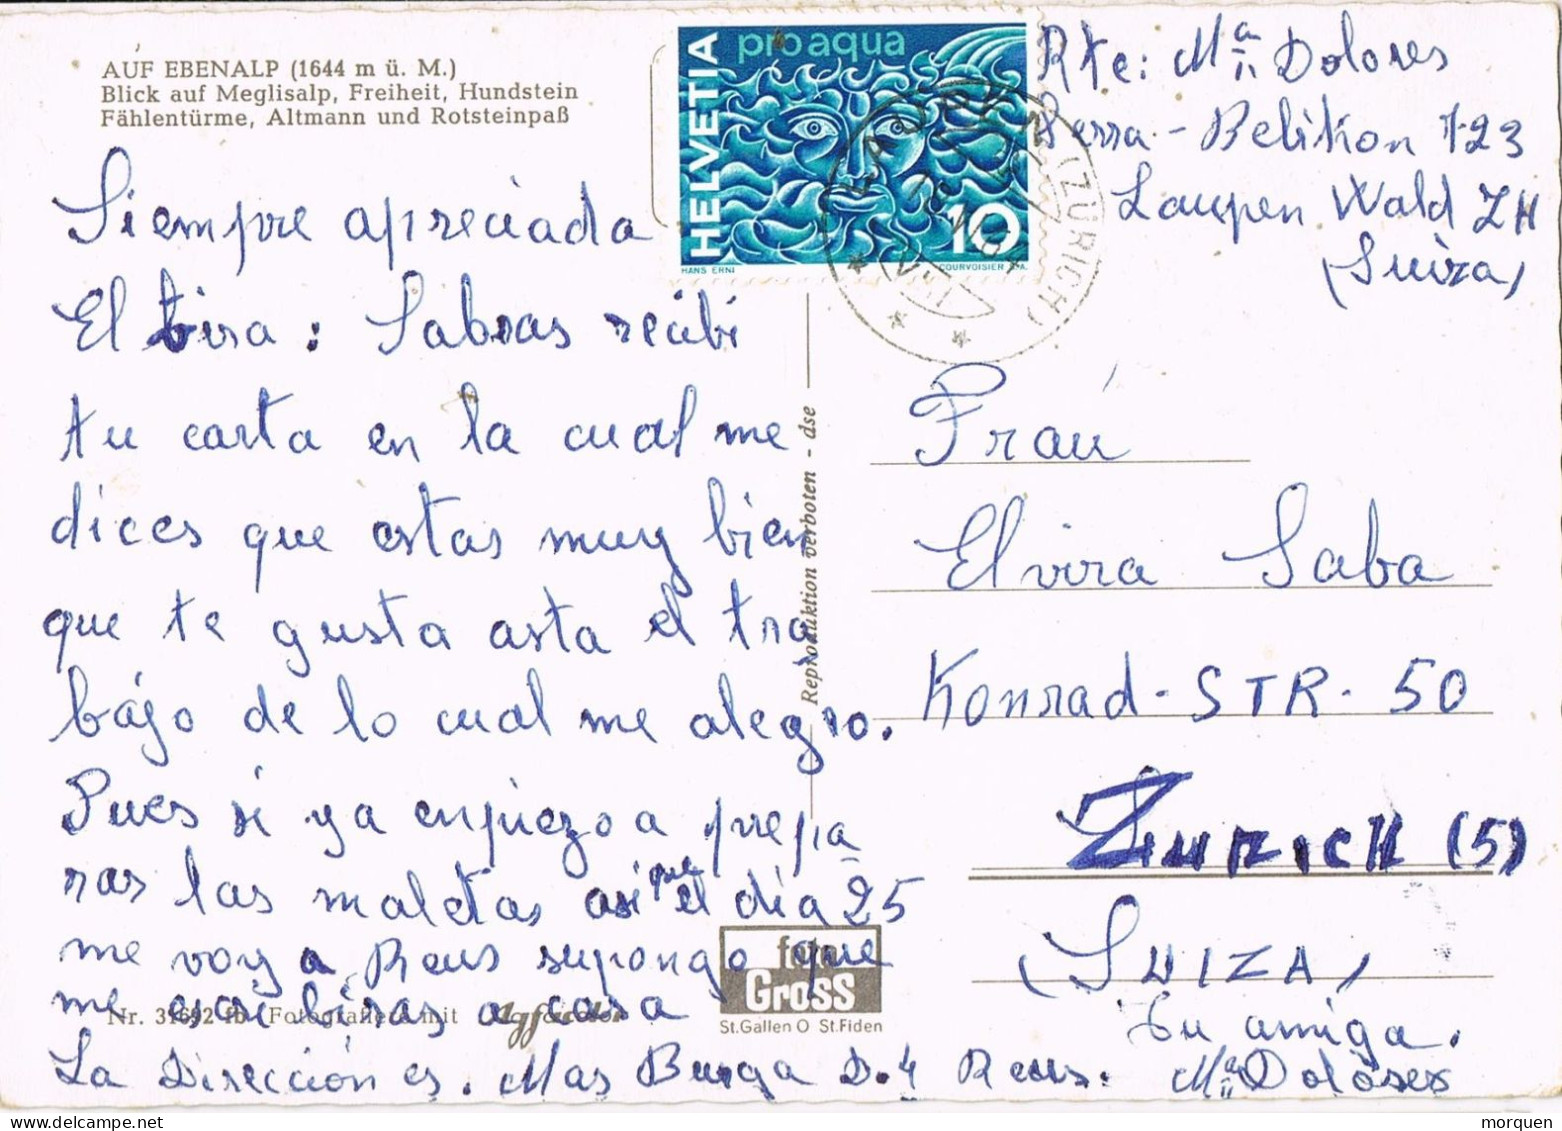 AUF EBENALP (1644 m ü. M.)
Blick auf Meglisalp, Freiheit, Hundstein
Fählentürme, Altmann und Rotsteinpaß
HELVETIA
pro aqua
10
HANS ERNI
COURVOISIER S.A.
(ZÜRICH)
Rte: Mª Dolores
Serra - Belikon 123
Laupen Wald ZH
(Suiza)
Siempre apreciada
Elvira: Sabras recibi
tu carta en la cual me
dices que estas muy bien
que te gusta asta el tra
bajo de lo cual me alegro.
Pues si ya enpiezo a prepa
rar las maletas asi que el dia 25
me voy a Reus supongo que
me escribiras a casa
La Dirección es. Mas Burga D.4 Reus.
Reproduktion verboten - dse
Fraú
Elvira Saba
Konrad-STR-50
ZURICH (5)
(SUIZA)
Tu amiga.
Mª Dolores
Nr. 31692 fb Fotografiert mit Agfacolor
foto
Gross
St.Gallen O St.Fiden
morquen